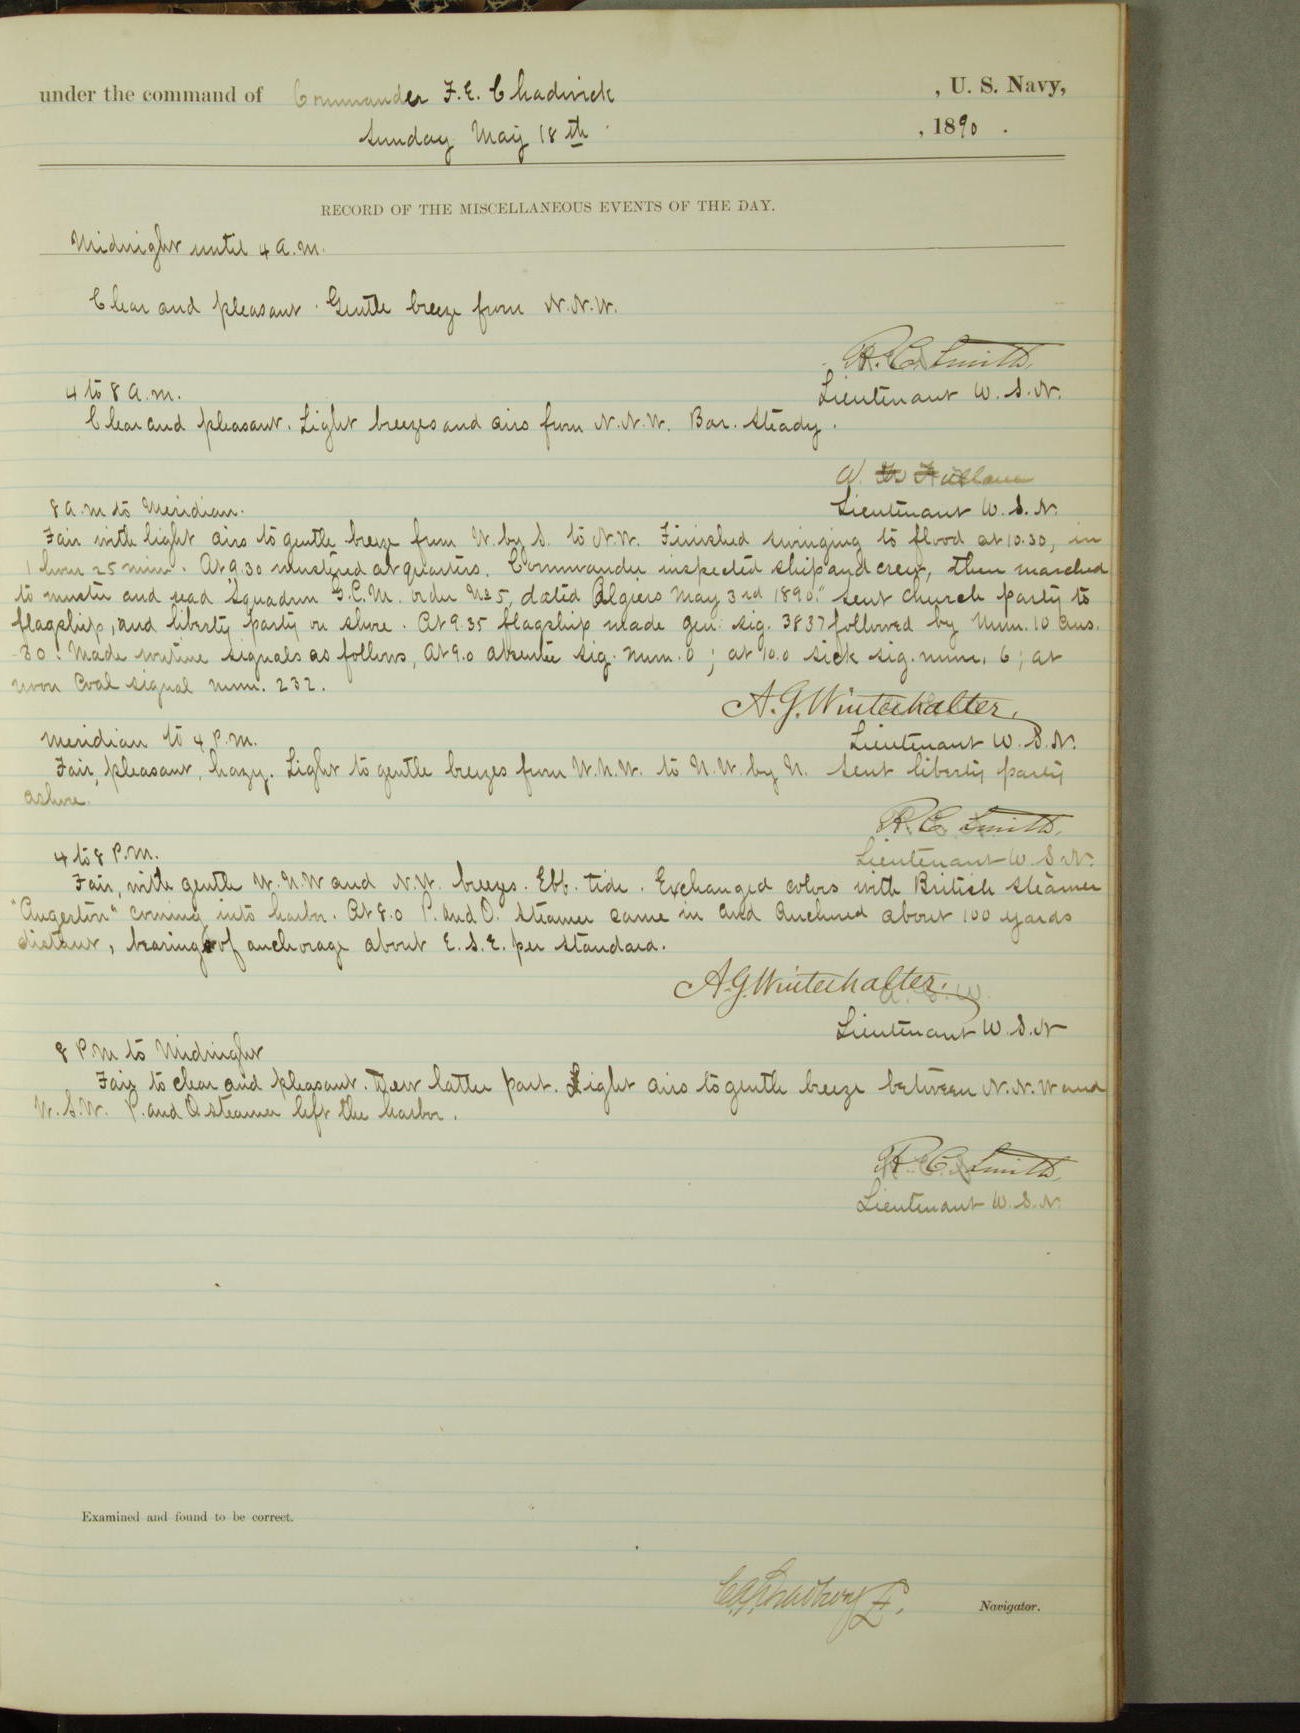 under the command of Commander F. E. Chadwick , U. S. Navy,
Sunday May 18th , 1890 .
RECORD OF THE MISCELLANEOUS EVENTS OF THE DAY.
Midnight until 4 A.M.
Clear and pleasant. Gentle breeze from N.N.W.
R. C. Smith,
Lieutenant U. S. N.
4 to 8 A.M.
Clear and pleasant. Light breezes and airs from N.N.W. Bar. steady.
W.
Lieutenant U. S. N.
8 A.M to Meridian.
Fair with light airs to gentle breeze from W. by S. to N.W. Finished swinging to flood at 10.30, in
1 hour 25 min. At 9.30 mustered at quarters. Commander inspected ship and crew, then marched
to muster and read "Squadron G.C.M. order No 5, dated Algiers May 3rd 1890." Sent church party to
flagship, and liberty party on shore. At 9.35 flagship made gen. sig. 3837 followed by Num. 10 Ans.
30! Made routine signals as follows, At 9.0 absentee sig. num. 0 ; at 10.0 sick sig. num. 6 ; at
noon coal signal num. 232.
A. G. Winterhalter,
Lieutenant U. S. N.
Meridian to 4 P.M.
Fair, pleasant, hazy. Light to gentle breezes from W.N.W. to N.W. by N. Sent liberty party
ashore.
R. C. Smith,
Lieutenant U. S. N.
4 to 8 P.M.
Fair, with gentle W.N.W and N.W. breezes. Ebb tide. Exchanged colors with British steamer
"Augerton" coming into harbor. At 8.0 P. and O. steamer came in and anchored about 100 yards
distant, bearing of anchorage about E.S.E. per standard.
A. G. Winterhalter,
Lieutenant U. S. N
8 P.M to Midnight
Fair to clear and pleasant. Dew latter part. Light airs to gentle breeze between N.N.W and
W.S.W. P. and O steamer left the harbor.
R. C. Smith,
Lieutenant U. S. N.
Examined and found to be correct.
Navigator.